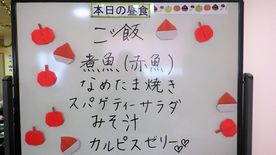 本日の昼食
二ツ飯
煮魚(赤魚)
なめたま焼き
スパゲティーサラダ
みそ汁
カルピスゼリー♡♡